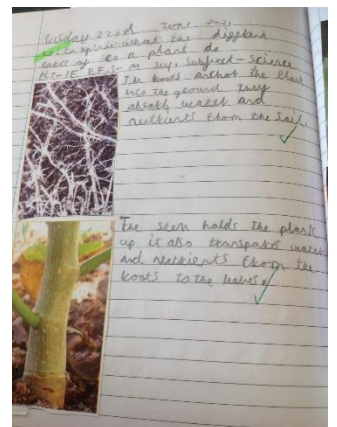 Tuesday 22nd June 2021
to explain what the diffrent
parts of a plant do
subject - science
The roots anchor the plant
into the ground they
absorb water and
nutrients from the soil.
The stem holds the plant
up it also transports water
and nutrients from the
roots to the leaves.